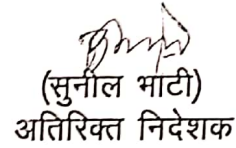 (सुनील भाटी)
अतिरिक्त निदेशक